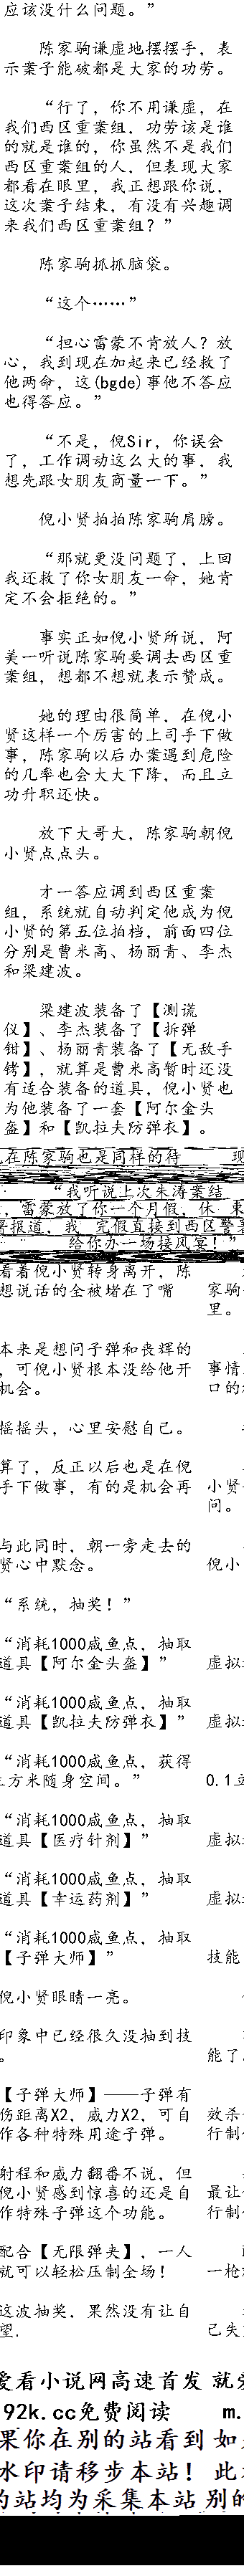 应该没什么问题。”
陈家驹谦虚地摆摆手，表
示案子能破都是大家的功劳。
“行了，你不用谦虚，在
我们西区重案组，功劳该是谁
的就是谁的，你虽然不是我们
西区重案组的人，但表现大家
都看在眼里，我正想跟你说，
这次案子结束，有没有兴趣调
来我们西区重案组？”
陈家驹抓抓脑袋。
“这个……”
“担心雷蒙不肯放人？放
心，我到现在加起来已经救了
他两命，这(bgde)事他不答应
也得答应。”
“不是，倪Sir，你误会
了，工作调动这么大的事，我
想先跟女朋友商量一下。”
倪小贤拍拍陈家驹肩膀。
“那就更没问题了，上回
我还救了你女朋友一命，她肯
定不会拒绝的。”
事实正如倪小贤所说，阿
美一听说陈家驹要调去西区重
案组，想都不想就表示赞成。
她的理由很简单，在倪小
贤这样一个厉害的上司手下做
事，陈家驹以后办案遇到危险
的几率也会大大下降，而且立
功升职还快。
放下大哥大，陈家驹朝倪
小贤点点头。
才一答应调到西区重案
组，系统就自动判定他成为倪
小贤的第五位拍档，前面四位
分别是曹米高、杨丽青、李杰
和梁建波。
梁建波装备了【测谎
仪】、李杰装备了【拆弹
钳】、杨丽青装备了【无敌手
铐】，就算是曹米高暂时还没
有适合装备的道具，倪小贤也
为他装备了一套【阿尔金头
盔】和【凯拉夫防弹衣】。
在陈家驹也是同样的待 现
“我听说上次朱涛案结
，雷蒙放了你一个月假，休 束
假直接到西区警署
给你办一场接风宴！”
看着倪小贤转身离开，陈
想说话的全被堵在了嘴 家驹
里。
本来是想问子弹和丧辉的
，可倪小贤根本没给他开 事情
机会。 口的
摇摇头，心里安慰自己。
算了，反正以后也是在倪
手下做事，有的是机会再 小贤
问。
与此同时，朝一旁走去的
贤心中默念。 倪小
“系统，抽奖！”
“消耗1000咸鱼点，抽取
道具【阿尔金头盔】” 虚拟
“消耗1000咸鱼点，抽取
道具【凯拉夫防弹衣】” 虚拟
“消耗1000咸鱼点，获得
立方米随身空间。” 0.1立
“消耗1000咸鱼点，抽取
道具【医疗针剂】” 虚拟
“消耗1000咸鱼点，抽取
道具【幸运药剂】” 虚拟
“消耗1000咸鱼点，抽取
【子弹大师】” 技能
倪小贤眼睛一亮。
印象中已经很久没抽到技
。 能了
【子弹大师】——子弹有
伤距离X2，威力X2，可自 效杀
作各种特殊用途子弹。 行制
射程和威力翻番不说，但
倪小贤感到惊喜的还是自 最让
作特殊子弹这个功能。 行制
配合【无限弹夹】，一人
就可以轻松压制全场！ 一枪
这波抽奖，果然没有让自
望． 己失
爱看小说网高速首发 就爱
92k.cc免费阅读 m.
果你在别的站看到 如
水印请移步本站！ 此
的站均为采集本站 别的